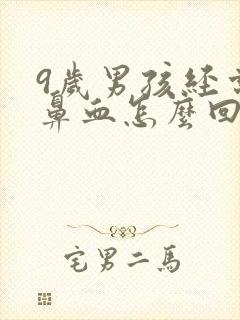 9歲男孩經常
鼻血怎麼回
宅男二馬